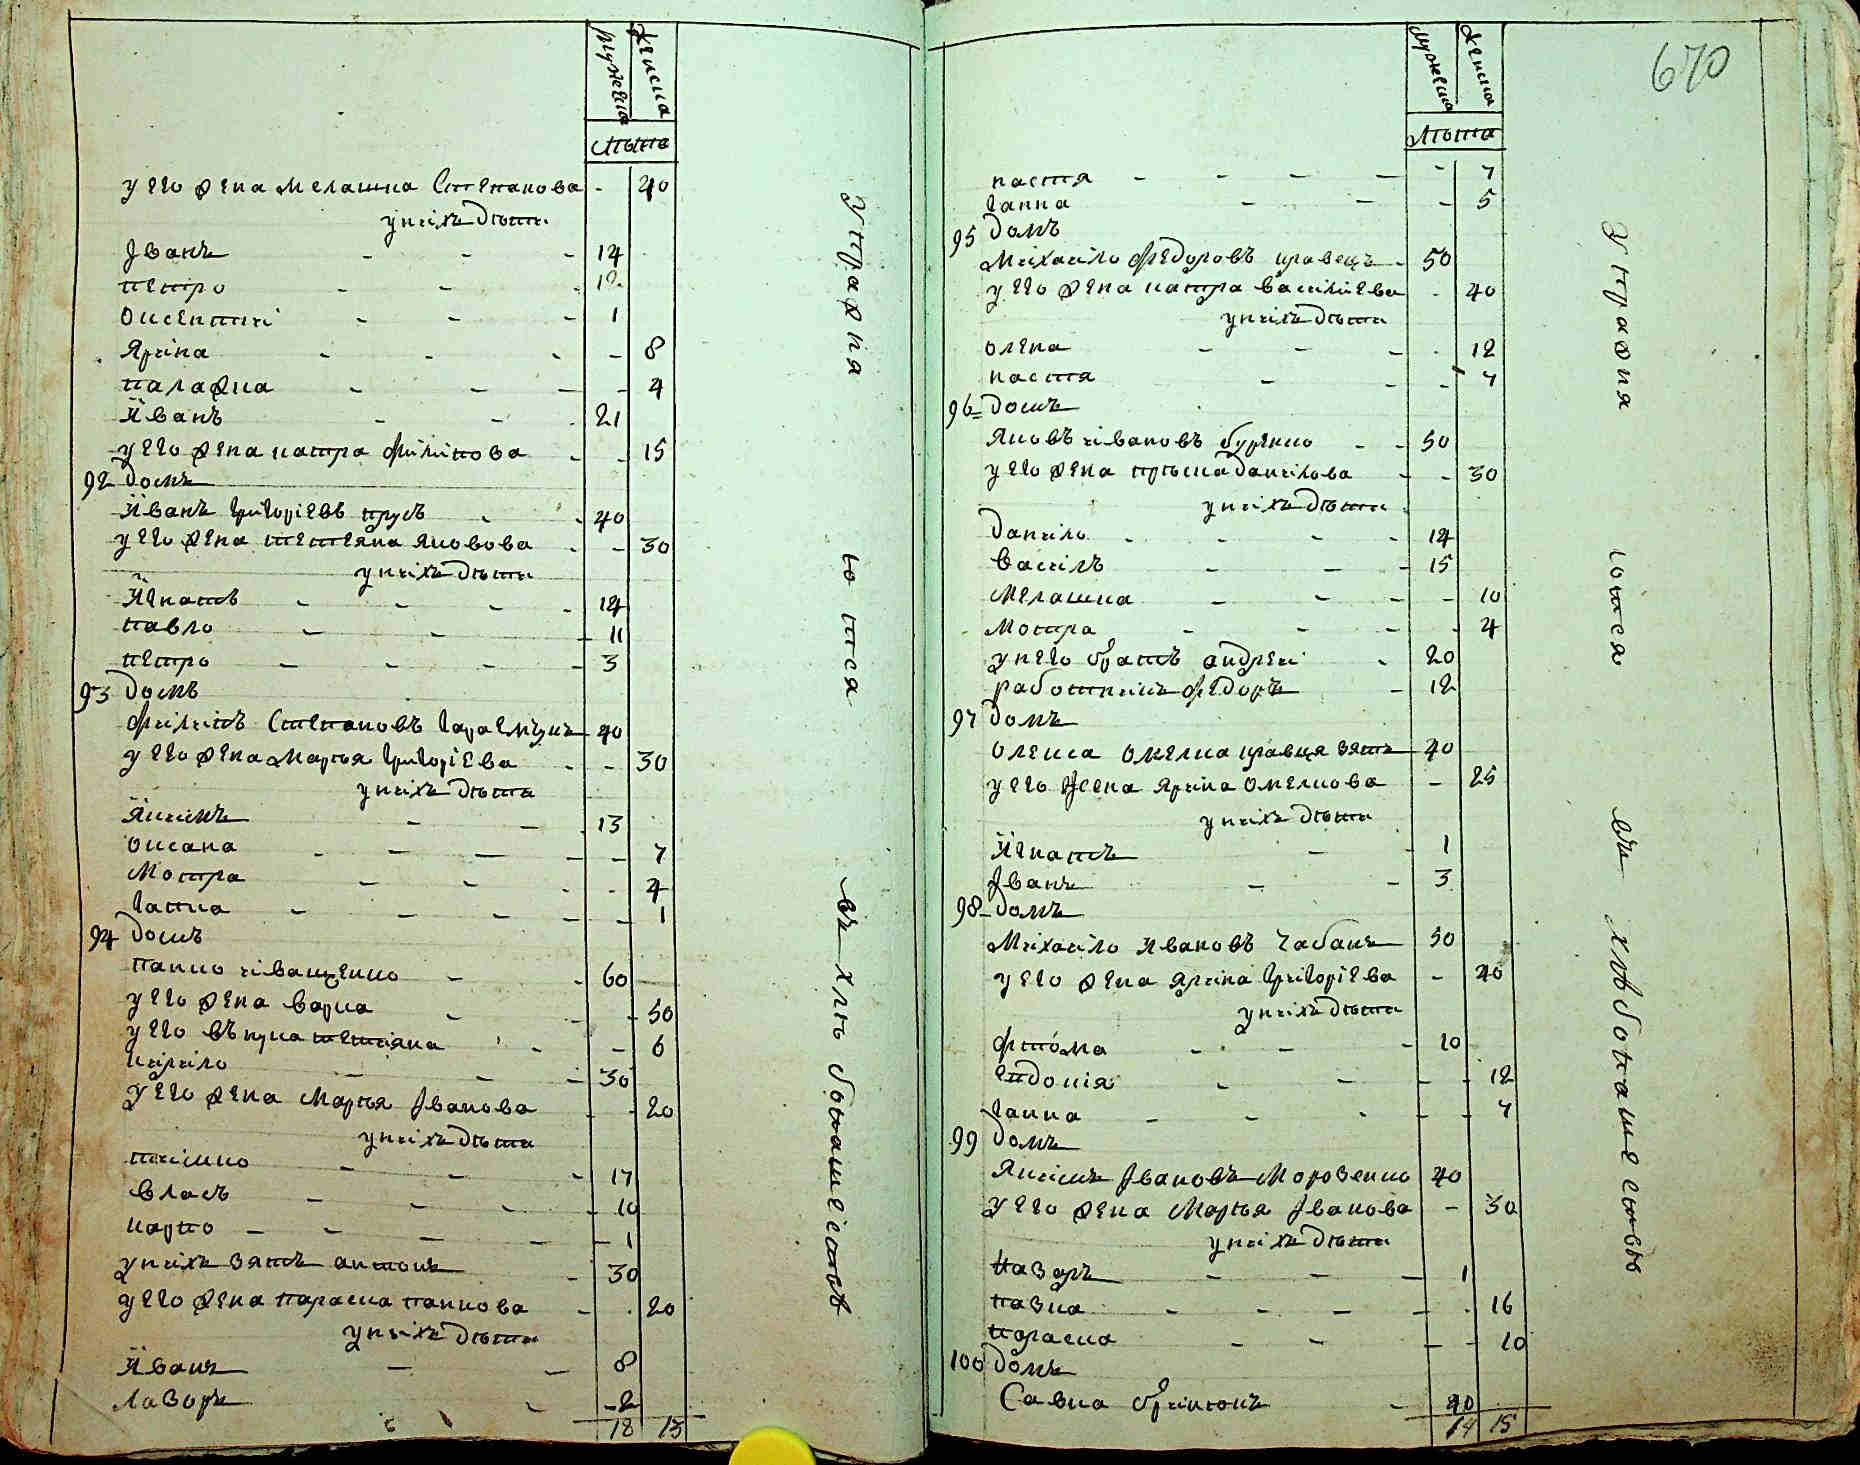 мужеска
женска
лѣта
у его жена мелашка Степанова - 40
у нихъ дѣти
Іванъ - - - 14
петро - - - 12
оксентий - - - 1
Ярина - - - - 8
палажка - - - - 4
Иванъ - - - 21
у его жена катра филипова - - 15
92 домъ
Иванъ григоріевъ прусъ - - 40
у его жена тетяна яковова - - 30
у нихъ дѣти
Игнатъ - - - - 14
павло - - - 11
петро - - - - 3
93 домъ
филипъ Степановъ 40
у его жена Марья григоріева - - 30
у нихъ дѣти
Якимъ - - 13
оксана - - - - - 7
Мотра - - - - 4
ганна - - - - - 1
94 домъ
панко иващенко - - 60
у его жена варка - - - 50
у его внука тетяна - - - 6
кирило - - - 30
у его жена Марья Іванова - - 20
у нихъ дѣти
тимко - - - 17
власъ - - - - 10
карпо - - - - - 1
у нихъ зять антонъ - 30
у его жена параска панкова - - 20
у нихъ дѣти
Иванъ - - 8
Лазоръ - - 2
18 13
Упражня
ются
въ хлѣбопашествѣ
670
мужеска
женска
лѣта
настя - - - - - 7
ганна - - - 5
95 домъ
Михайло федоровъ кравецъ - 50
у его жена катра василіева - 40
у нихъ дѣти
олена - - - - 12
настя - - - 7
96 домъ
яковъ ивановъ буренко - - 50
у его жена приска данилова - - 30
у нихъ дѣти
данило - - - - 14
василь - - - 15
мелашка - - - - 10
мотра - - - - 4
у него братъ андрей - 20
работникъ федоръ - 12
97 домъ
олекса омелка кравця зять 40
у его жена ярина омелкова - 25
у нихъ дѣти
Игнатъ - - 1
Іванъ - - 3
98 домъ
Михайло Ивановъ чабанъ 50
у его жена ярина григоріева - 40
у нихъ дѣти
- - - 10
евдокія - - - - 12
ганна - - - - - 7
99 домъ
Якимъ Івановъ Морозенко 40
у его жена Марья Іванова - 30
у нихъ дѣти
назаръ - - - 1
пазка - - - - - 16
параска - - - - 10
100 домъ
Савка - 40
14 15
Упражня
ются
въ хлѣбопашествѣ